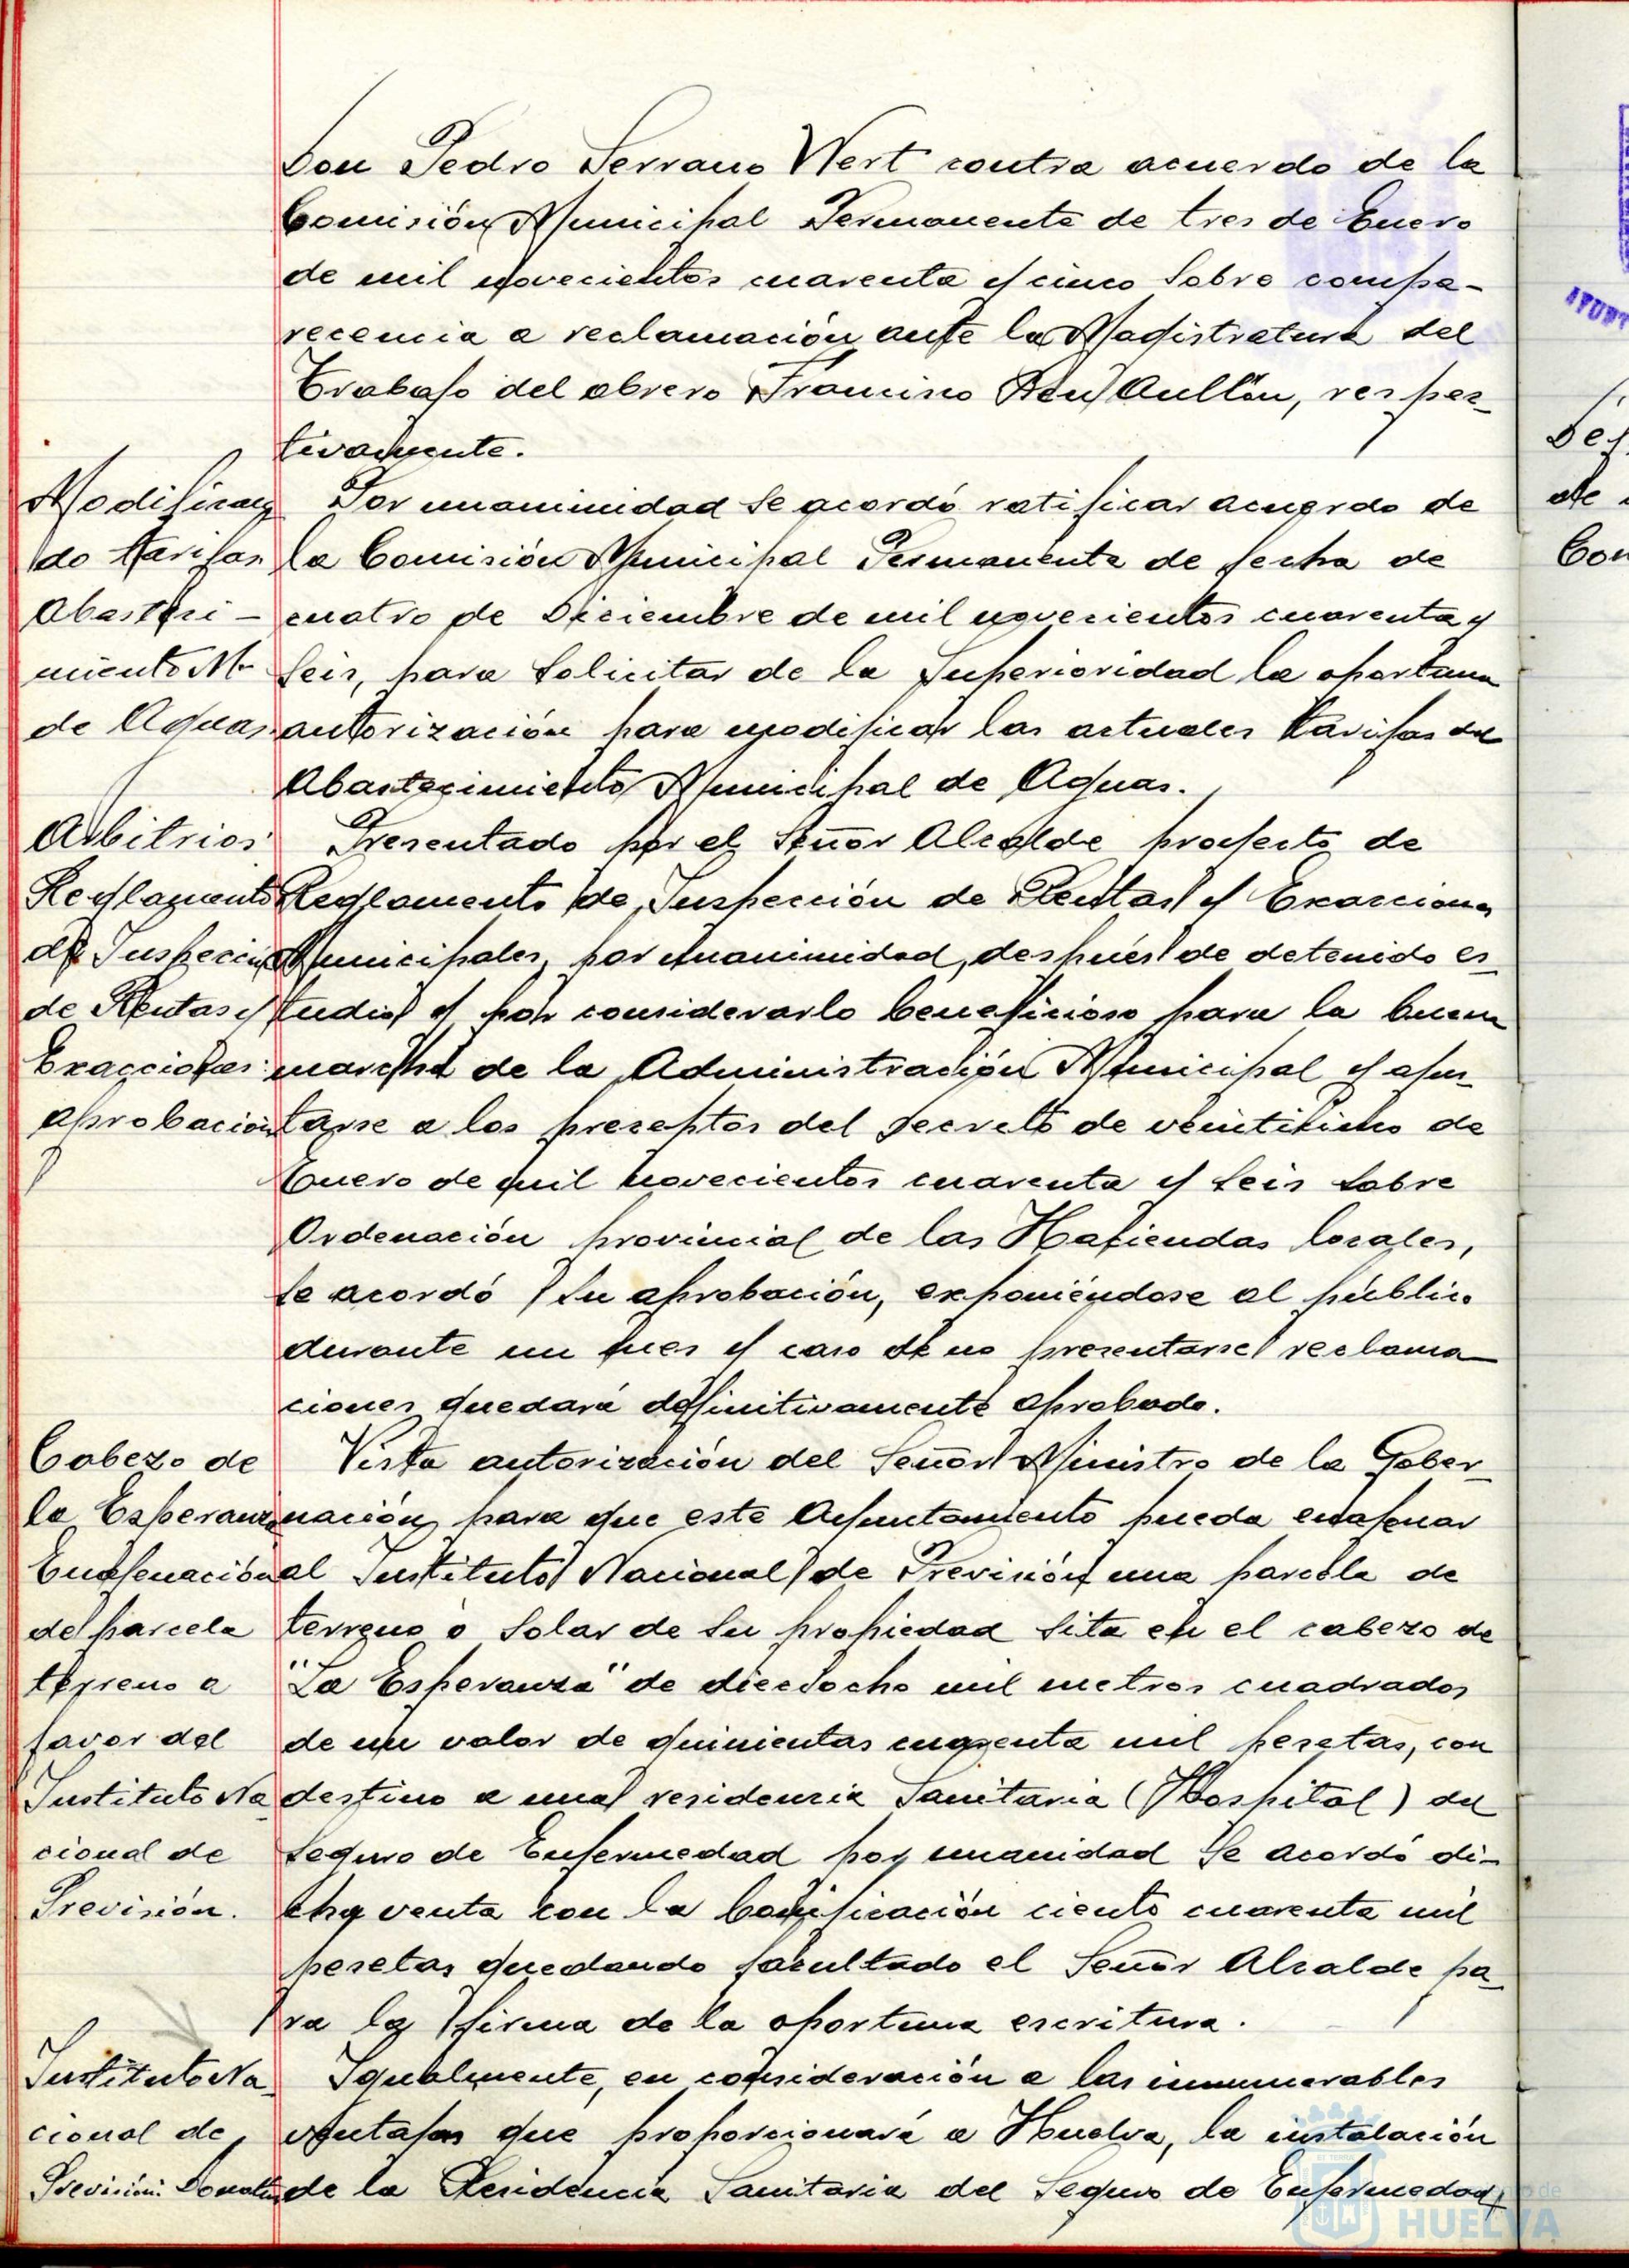 Don Pedro Serrano Wert contra acuerdo de la
Comisión Municipal Permanente de tres de Enero
de mil novecientos cuarenta y cinco sobre compa-
recencia a reclamación ante la Magistratura del
Trabajo del obrero Francisco Aullón, respec-
tivamente.
Modificac
do tarifas
Abasteci-
miento M.
de Aguas
Por unanimidad se acordó ratificar acuerdo de
la Comisión Municipal Permanente de fecha de
cuatro de Diciembre de mil novecientos cuarenta y
seis, para solicitar de la Superioridad la oportuna
autorización para modificar las actuales tarifas del
Abastecimiento Municipal de Aguas.
Arbitrios
Reglamento
de Inspección
de Rentas y
Exacciones:
aprobación
Presentado por el Señor Alcalde proyecto de
Reglamento de Inspección de Rentas y Exacciones
Municipales, por unanimidad, después de detenido es-
tudio y por considerarlo beneficioso para la buena
marcha de la Administración Municipal y ajus-
tarse a los preceptos del Decreto de veinticinco de
Enero de mil novecientos cuarenta y seis sobre
Ordenación provincial de las Haciendas locales,
se acordó su aprobación, exponiéndose al público
durante un mes y caso de no presentarse reclama-
ciones quedará definitivamente aprobado.
Cabezo de
la Esperanza
Enajenación
de parcela
terreno a
favor del
Instituto Na-
cional de
Previsión.
Vista autorización del Señor Ministro de la Gober-
nación para que este Ayuntamiento pueda enajenar
al Instituto Nacional de Previsión una parcela de
terreno o solar de su propiedad sita en el cabezo de
"La Esperanza" de dieciocho mil metros cuadrados
de un valor de quinientas cuarenta mil pesetas, con
destino a una residencia Sanitaria (Hospital) del
Seguro de Enfermedad por unanidad se acordó di-
cha venta con la bonificación ciento cuarenta mil
pesetas quedando facultado el Señor Alcalde pa-
ra la firma de la oportuna escritura.
Instituto Na-
cional de
Previsión: Donativo
Igualmente, en consideración a las innumerables
ventajas que proporcionará a Huelva, la instalación
de la Residencia Sanitaria del Seguro de Enfermedad,
de
HUELVA